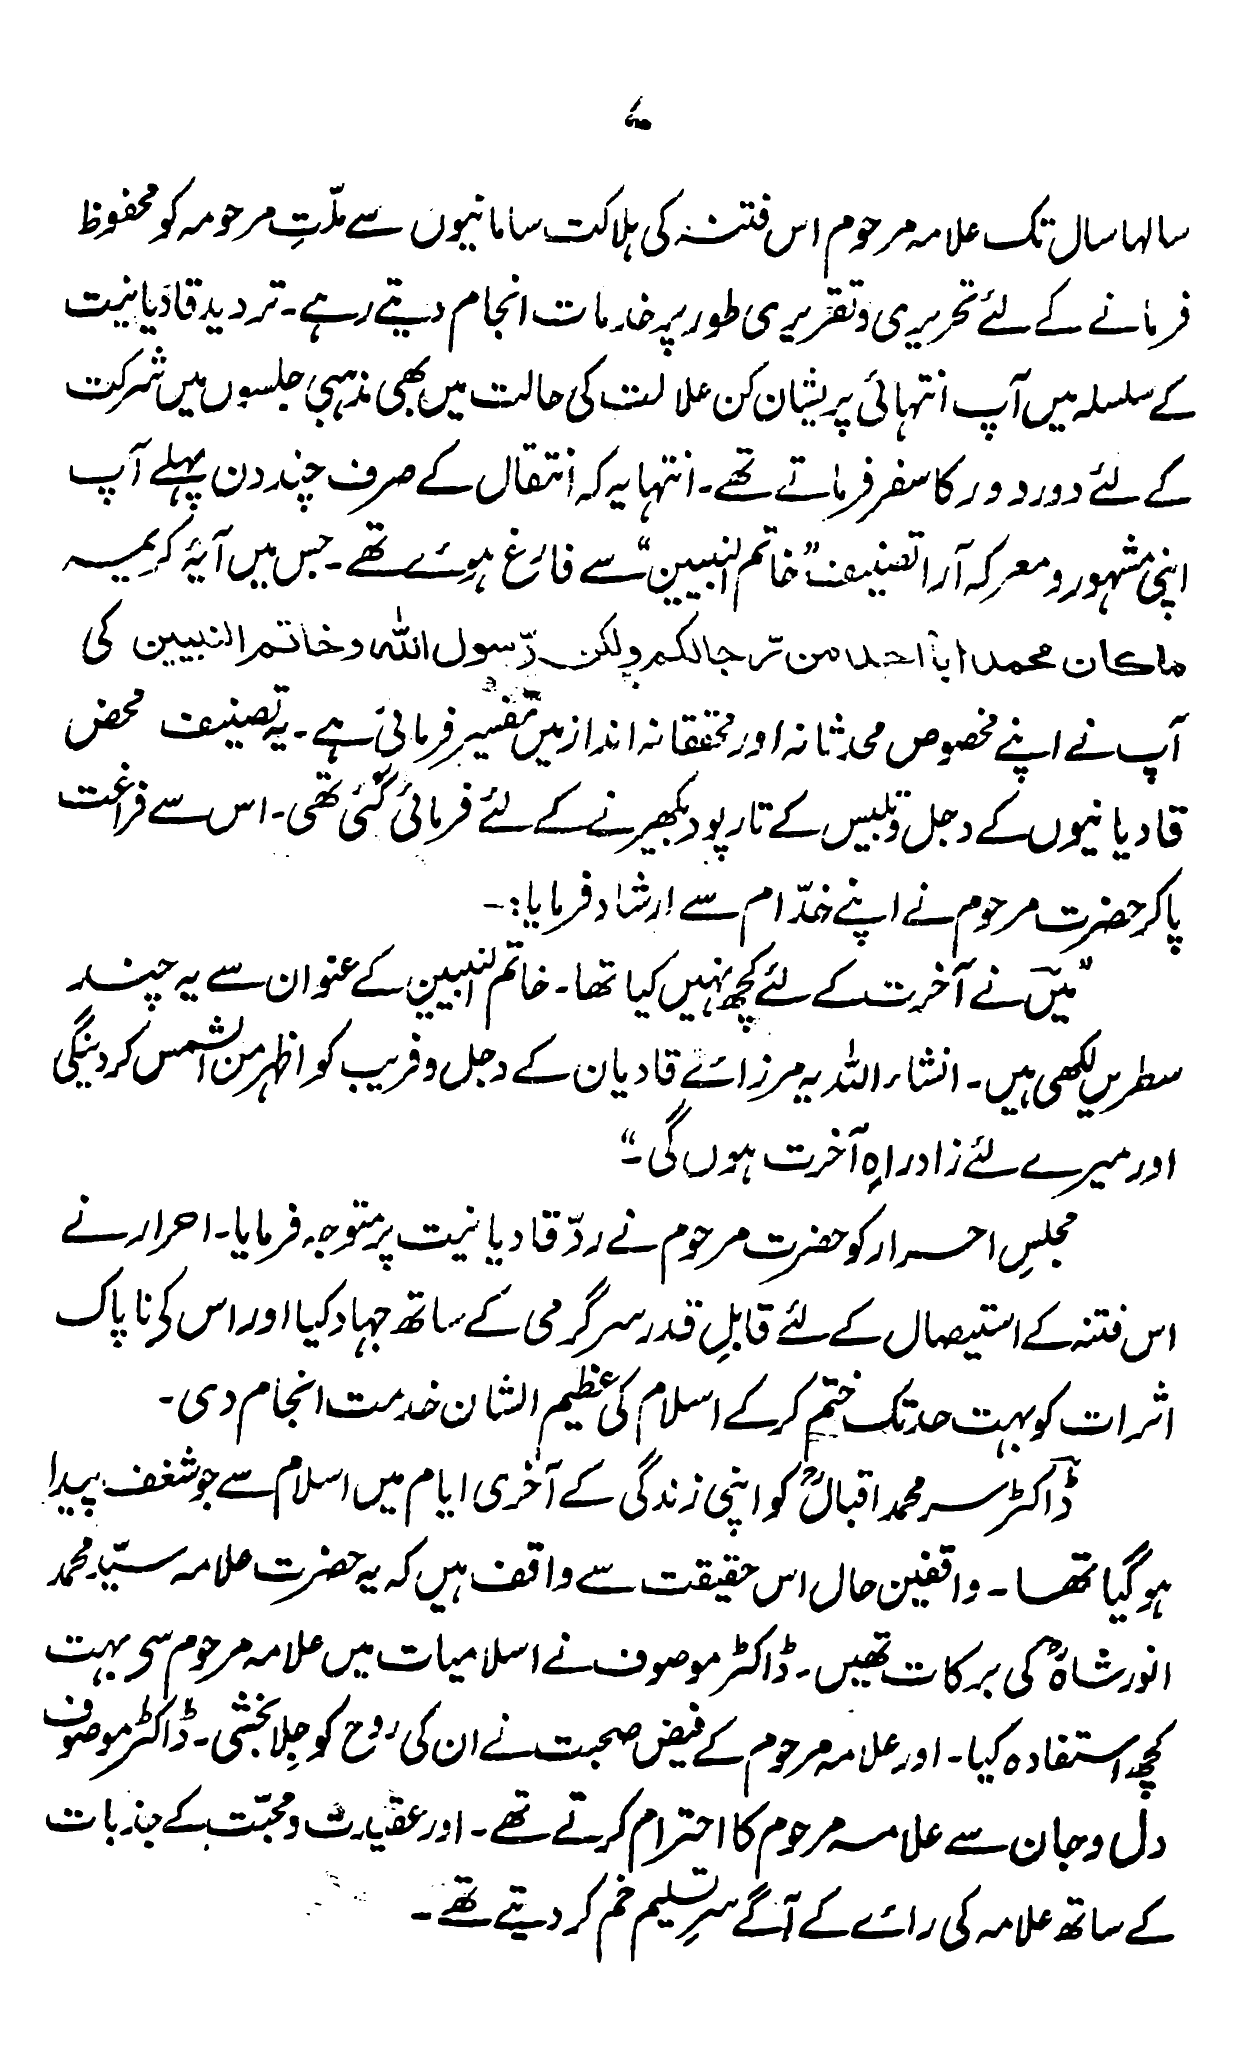 ۷
سالہا سال تک علامہ مرحوم اس فتنہ کی ہلاکت سامانیوں سے ملّتِ مرحومہ کو محفوظ
فرمانے کے لئے تحریری و تقریری طور پر خدمات انجام دیتے رہے۔ تردید قادیانیت
کے سلسلہ میں آپ انتہائی پریشان کن علالت کی حالت میں بھی مذہبی جلسوں میں شرکت
کے لئے دور دور کا سفر فرماتے تھے۔ انتہا یہ کہ انتقال کے صرف چند دن پہلے آپ
اپنی مشہور و معرکہ آرا تصنیف ”خاتم النبیین“ سے فارغ ہوئے تھے۔ جس میں آیۂ کریمہ
ماکان محمد ابآ احد من رّجالکم ولکن رّسول اللہ وخاتم النبیین کی
آپ نے اپنے مخصوص محدثانہ اور محققانہ انداز میں تفسیر فرمائی ہے۔ یہ تصنیف محض
قادیانیوں کے دجل و تلبیس کے تارپود بکھیرنے کے لئے فرمائی گئی تھی۔ اس سے فراغت
پا کر حضرت مرحوم نے اپنے خدّام سے ارشاد فرمایا:۔
”میں نے آخرت کے لئے کچھ نہیں کیا تھا۔ خاتم النبیین کے عنوان سے یہ چند
سطریں لکھی ہیں۔ انشاء اللہ یہ مرزائے قادیان کے دجل و فریب کو اظہر من الشمس کر دینگی
اور میرے لئے زادِ راہِ آخرت ہوں گی۔“
مجلسِ احرار کو حضرت مرحوم نے ردّ قادیانیت پر متوجہ فرمایا۔ احرار نے
اس فتنہ کے استیصال کے لئے قابلِ قدر سرگرمی کے ساتھ جہاد کیا اور اس کی ناپاک
اثرات کو بہت حد تک ختم کر کے اسلام کی عظیم الشان خدمت انجام دی۔
ڈاکٹر سر محمد اقبالؒ کو اپنی زندگی کے آخری ایام میں اسلام سے جو شغف پیدا
ہو گیا تھا۔ واقفین حال اس حقیقت سے واقف ہیں کہ یہ حضرت علامہ سیّد محمد
انور شاہؒ کی برکات تھیں۔ ڈاکٹر موصوف نے اسلامیات میں علامہ مرحوم سی بہت
کچھ استفادہ کیا۔ اور علامہ مرحوم کے فیض صحبت نے ان کی روح کو جِلا بخشی۔ ڈاکٹر موصوف
دل و جان سے علامہ مرحوم کا احترام کرتے تھے۔ اور عقیدت و محبّت کے جذبات
کے ساتھ علامہ کی رائے کے آگے سرِ تسلیم خم کر دیتے تھے۔